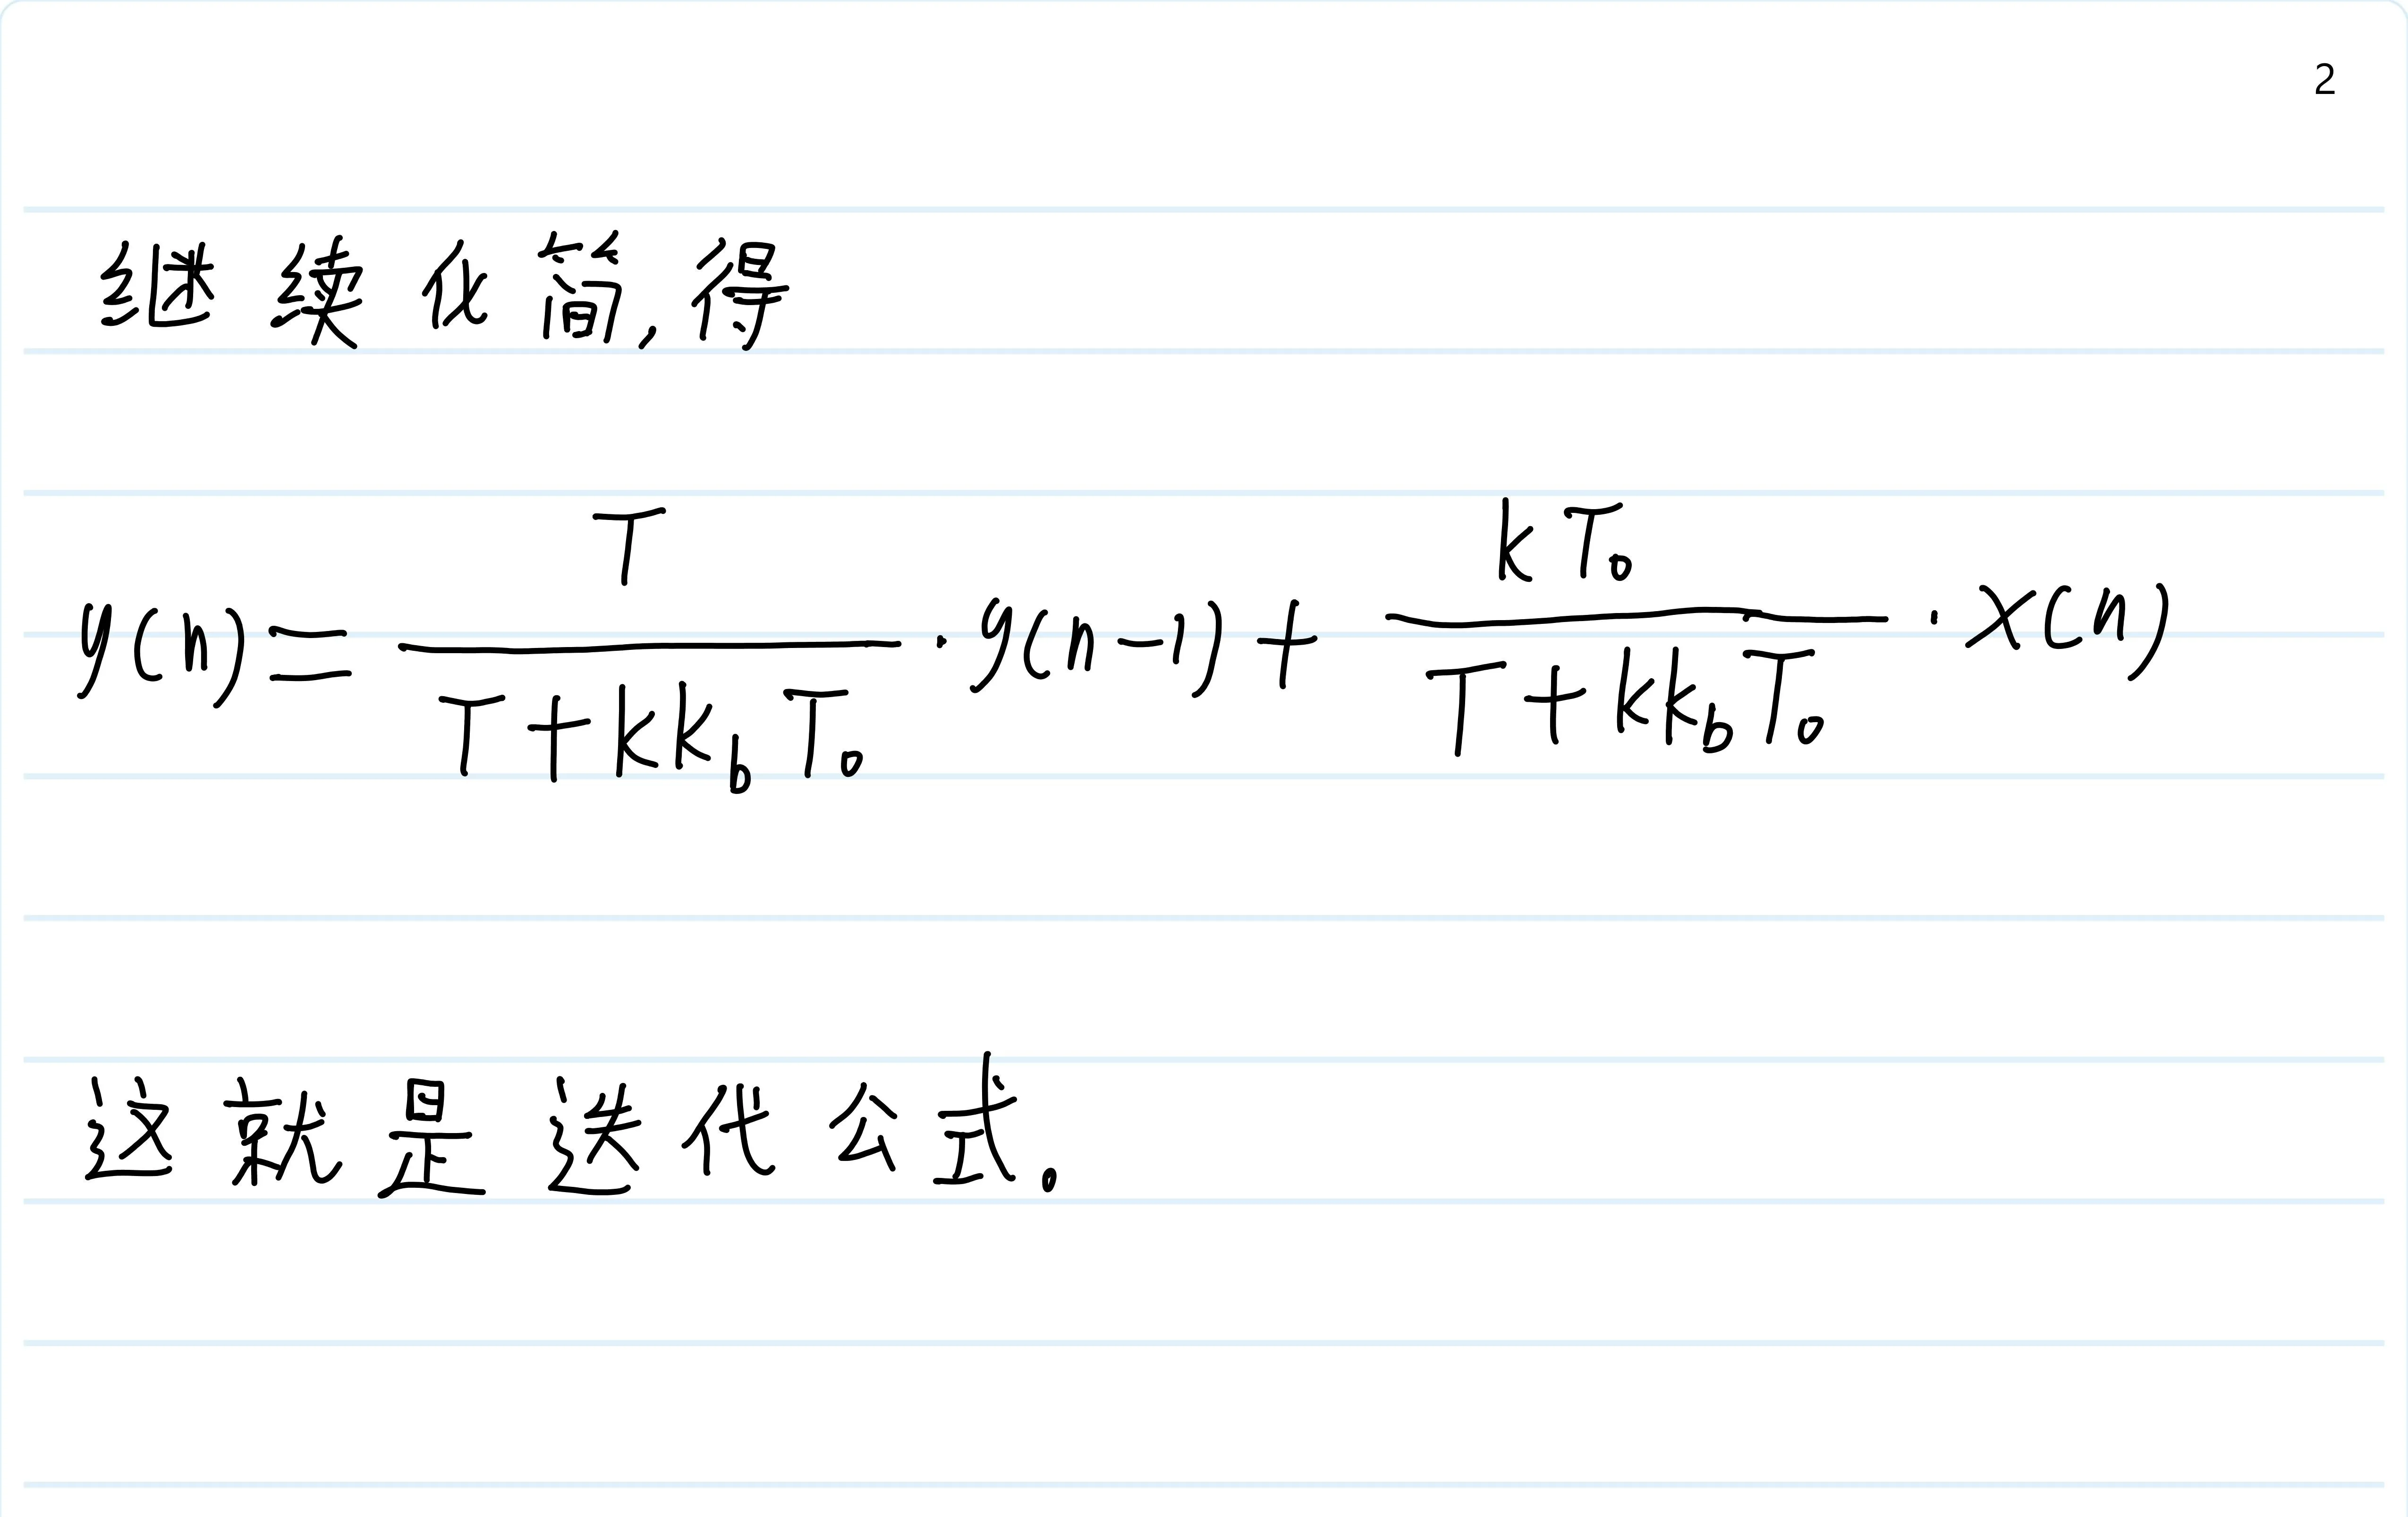 2
继续化简,得
y(n) = \frac{T}{T+kk_bT_0} · y(n-1) + \frac{kT_0}{T+kk_bT_0} · x(n)
这就是迭代公式。